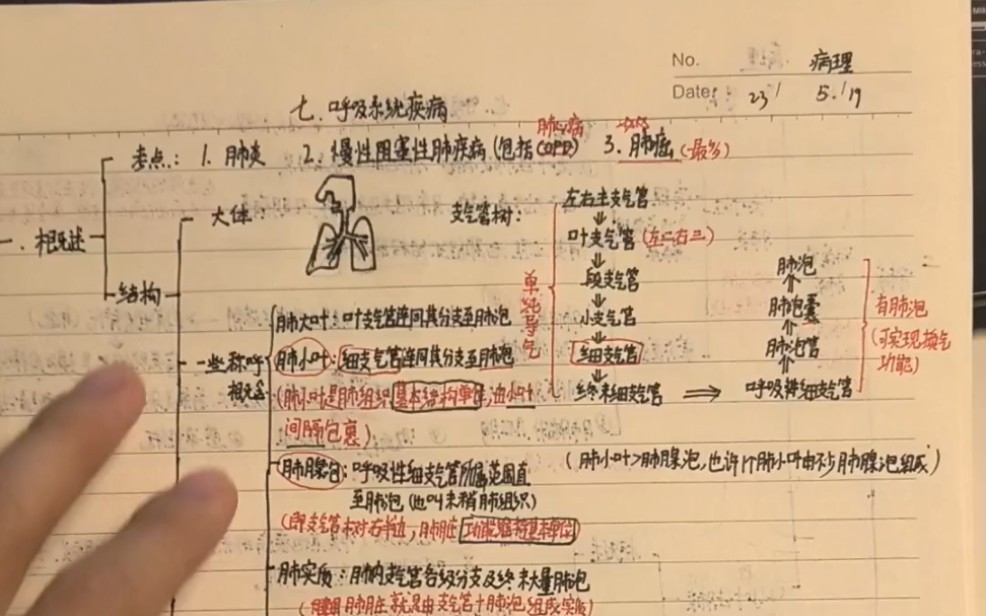 No. 病理
Date: 23/ 5./19
七. 呼吸系统疾病
肺心病
考点: 1. 肺炎 2. 慢性阻塞性肺疾病 (包括COPD) 3. 肺癌 (最多)
一. 概述
结构
大体:
支气管树:
左右主支气管
叶支气管 (左二右三)
段支气管
小支气管
细支气管
终末细支气管
单纯导气
呼吸性细支气管
肺泡管
肺泡囊
肺泡
有肺泡
(可实现换气
功能)
一些称呼
肺大叶: 叶支气管连同其分支至肺泡
肺小叶: 细支气管连同其分支至肺泡
(肺小叶是肺组织基本结构单位, 由小叶
间隔包裹)
肺腺泡: 呼吸性细支气管所属范围直
至肺泡 (也叫末梢肺组织)
(即支气管树右半边, 肺脏 基本单位
(肺小叶>肺腺泡, 也许1个肺小叶由不少肺腺泡组成)
肺实质: 肺内支气管各级分支及终末大量肺泡
肺脏就是由支气管+肺泡组成实质)